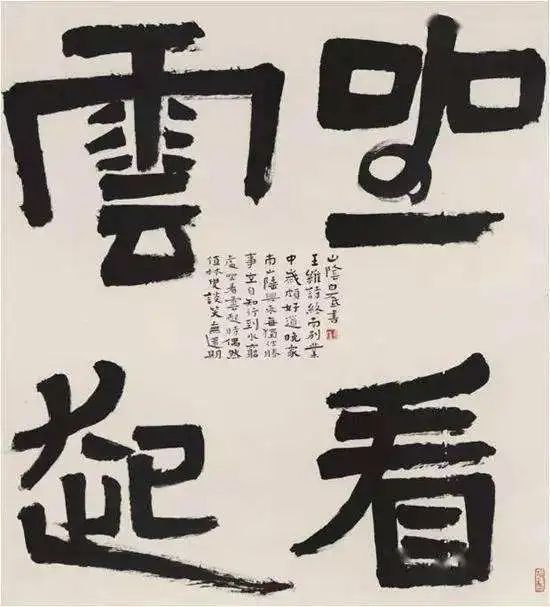 坐看
雲起
山陰白砥書
王維詩終南別業
中歲頗好道晚家
南山陲興來每獨往勝
事空自知行到水窮
處坐看雲起時偶然
值林叟談笑無還期